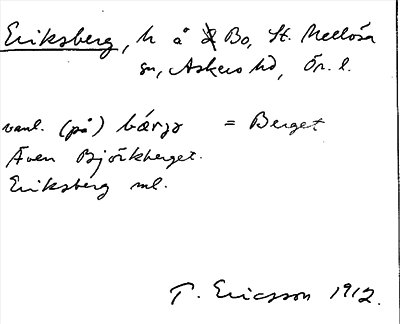 Eriksberg, h å Bo, St. Mellösa
sn, Askers hd, Ör. l.
vanl. (på) bárjə = Berget
Även Björkberget.
Eriksberg ml.
T. Ericsson 1912.